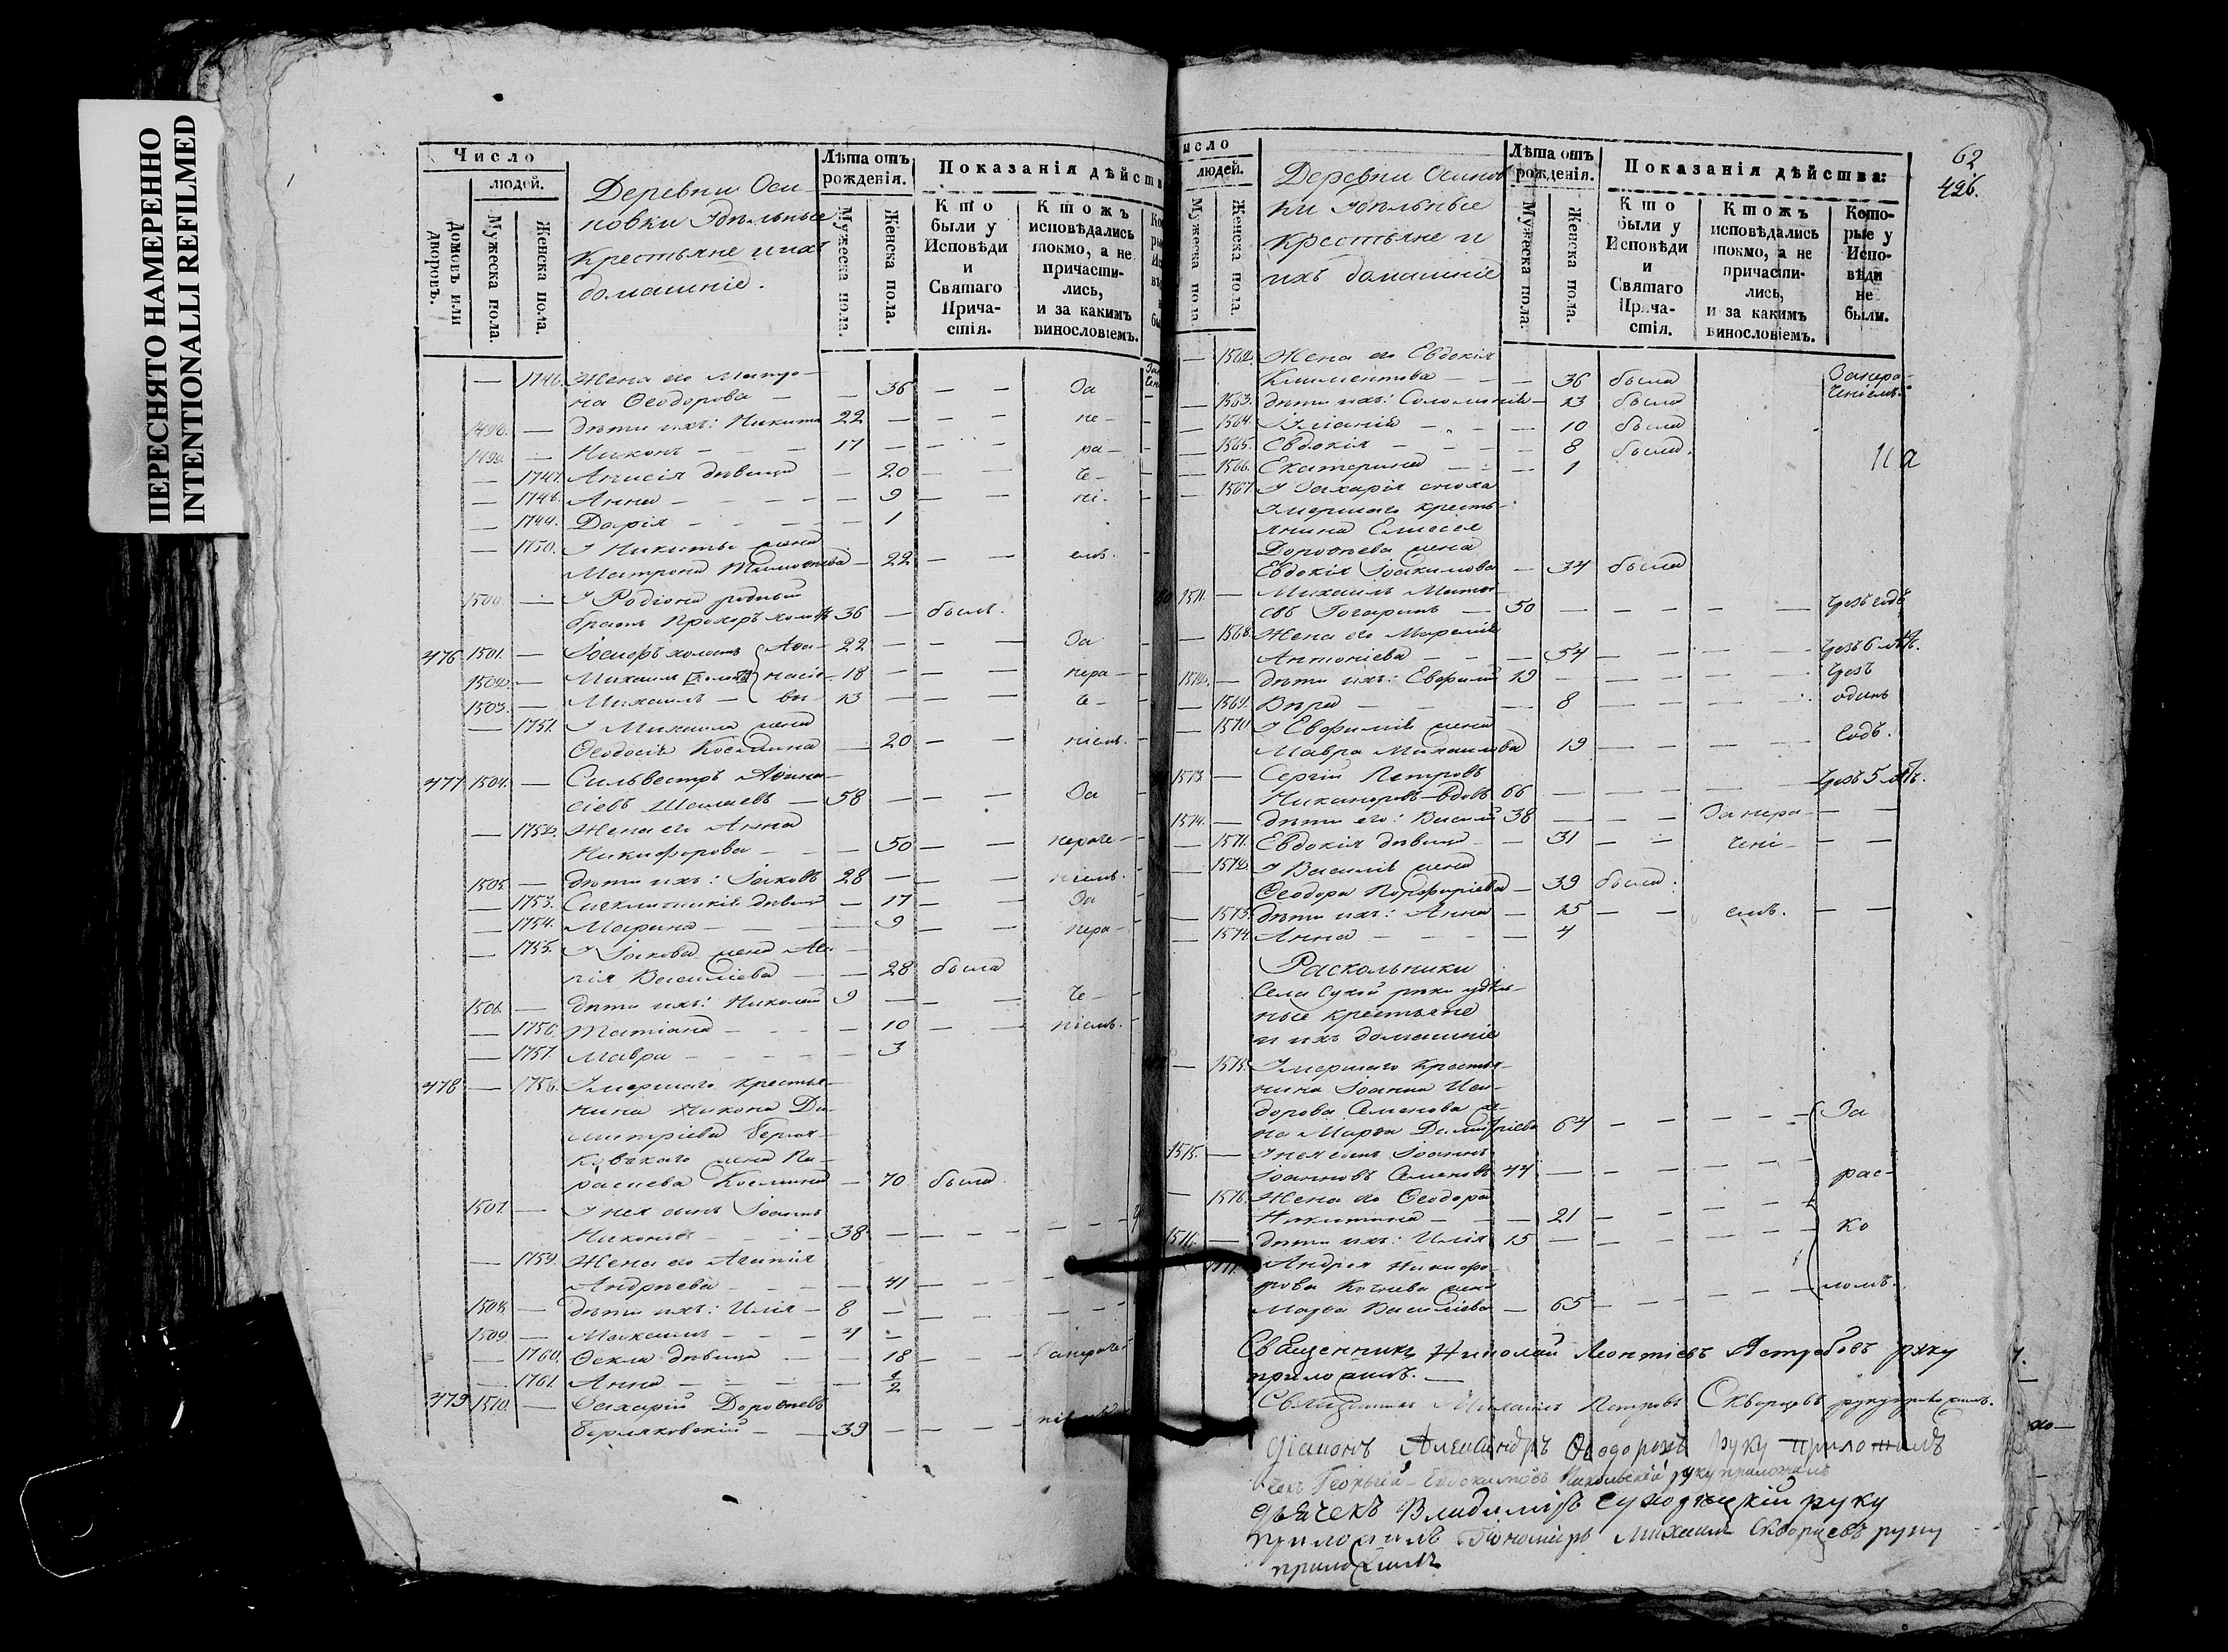 ПЕРЕСНЯТО НАМЕРЕННО
INTENTIONALLI REFILMED
Число
людей.
Домовъ или дворовъ.
Мужеска пола
Женска пола.
Деревни Оси-
новки удѣльные
крестьяне и ихъ
домашніе.
Лѣта отъ рожденія.
Мужеска пола.
Женска пола.
Показанія дѣйств
Кто были у Исповѣди и Святаго Прича-стія.
Ктожъ исповѣдались токмо, а не причасти-лись, и за какимъ винословіемъ.
— 1746. Жена его Матро-
на Ѳеодорова — — 36 — — За
1498. — дѣти ихъ: Никита 22 — — не-
1499. — Никонъ — — 17 — — — ра-
— 1747. Анисія дѣвица — 20 — — че-
— 1748. Анна — — — 9 — — ні-
— 1749. Дарія — — — 1
— 1750. У Никиты жена
Матрона Тимоѳеева — 22 — — емъ.
1500. — У Родіона родный
братъ Прохоръ холостъ 36 — былъ.
476 1501. — Іосифъ холостъ Аѳа- 22 — — За
1502. — Михаилъ насіе- 18 — — — нера-
1503. — Михаилъ — вы- 13 — — че-
— 1751. У Михаила жена
Ѳеодосія Космина — 20 — — ніемъ.
477 1504. — Сильвестръ Аѳана-
сіевъ Шалаевъ — 58 — — — За
— 1752. Жена его Анна
Никифорова — — — 50 — — нераче-
1505. — дѣти ихъ: Іаковъ 28 — — ніемъ.
— 1753. дѣвица — 17 — — За
— 1754. Марина — — — 9 — — нера-
— 1755. У Іакова жена Ма-
рія Василіева — — 28 была
1506. — дѣти ихъ: Николай 9 — — че-
— 1756. Татіана — — — 10 — — ніемъ.
— 1757. Мавра — — — 3
478 — 1758. Умершаго крестья-
нина Никона Ди-
митріева Берля-
ковскаго жена Па-
раскева Космина — 70 была
1507. — У нея сынъ Іоаннъ
Никоновъ — — — 38 — — —
— 1759. Жена его Агапія
Андреева — — — 41 — — —
1508. — дѣти ихъ: Илія — 8 — — —
1509. — Михаилъ — — — 4 —
— 1760. Ѳекла дѣвица — 18 — — Занераче-
— 1761. Анна — — — 1/2
479 1510. — Захарій Дороѳеевъ
Берляковскій — — 39 — — — ніемъ
62
426.
исло
людей.
Мужеска пола
Женска пола.
Деревни Осинов
ки удѣльные
крестьяне и
ихъ домашніе
Лѣта отъ рожденія.
Мужеска пола.
Женска пола.
Показанія дѣйства:
Кто были у Исповѣди и Святаго Прича-стія.
Ктожъ исповѣдались токмо, а не причасти-лись, и за какимъ винословіемъ.
Кото-рые у Испо-вѣди не были.
— 1562. Жена его Евдокія
Климентова — — — 36 была Занера-
— 1563. дѣти ихъ: Соломонія — 13 была ченіемъ.
— 1564. Іуліанія — — 10 была
— 1565. Евдокія — — — 8 была.
— 1566. Екатерина — — — 1
— 1567. У Захарія сноха
Умершаго кресть-
янина Елисея
Дороѳеева жена
Евдокія Іоакимова — 34 была
80 1511. — Михаилъ Матѳе-
евъ Гогаринъ — 50 — — — — чрезъ годъ
— 1568. Жена его Марѳа
Антоніева — — — 54 — — — чрезъ 6 лѣтъ.
1512. — дѣти ихъ: Евфимій 19 — — — чрезъ
— 1569. Вѣра — — — 8 — — — одинъ
— 1570. У Евфимія жена
Мавра Михаилова 19 — — — годъ.
1513. — Сергій Петровъ
Никаноровъ вдовъ 66 — — — чрезъ 5 лѣтъ.
1514. — дѣти его: Василій 38 — — — Занера- —
— 1571. Евдокія дѣвица — 31 — — чені- — —
— 1572. У Василія жена
Ѳеодора Порфиріева — 39 была.
— 1573. дѣти ихъ: Анна — 15 — — емъ. — —
— 1574. Анна — — — 4
Раскольники
Села Сухой рѣки удѣль-
ные крестьяне
и ихъ домашніе
— 1575. Умершаго крестья-
нина Іоанна Иси-
дорова Семенова же-
на Марѳа Димитріева 64 — — — За
1515. — У нея сынъ Іоаннъ
Іоанновъ Семеновъ 44 — — — рас-
— 1576. Жена его Ѳеодора
Никитина — — — 21 — — —
1516. — дѣти ихъ: Илія 15 — — — ко
1577. Андрея Никифо-
рова жена
Марѳа Василіева — 65 — — — ломъ.
Священникъ Николай Леонтіевъ Ястребовъ руку
приложилъ. —
Священникъ Михаилъ Петровъ Скворцовъ руку приложилъ.
Діаконъ Александръ Ѳеодоровъ руку приложилъ
Георгій Евдокимовъ Никольскій руку приложилъ
Дьячекъ Владиміръ Сухорѣцкій руку
приложилъ Пономарь Михаилъ Скворцевъ руку
приложилъ